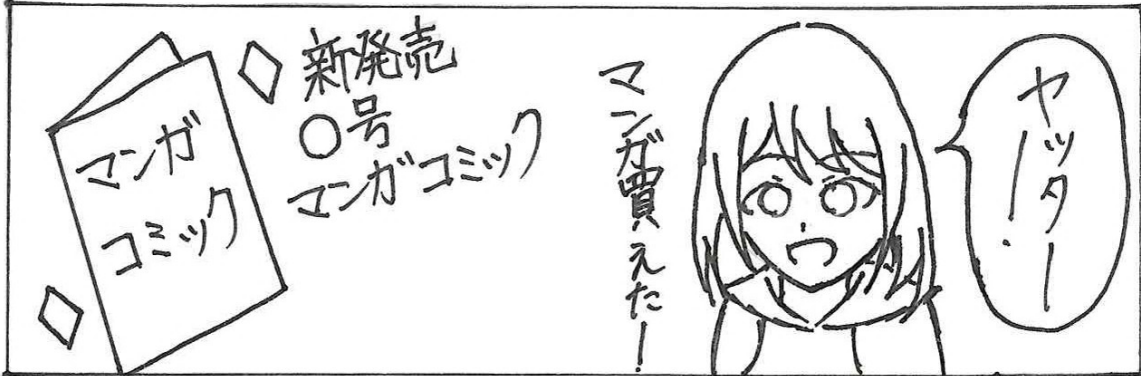 ヤッター!
マンガ買えたー!
新発売
○号
マンガコミック
マンガ
コミック